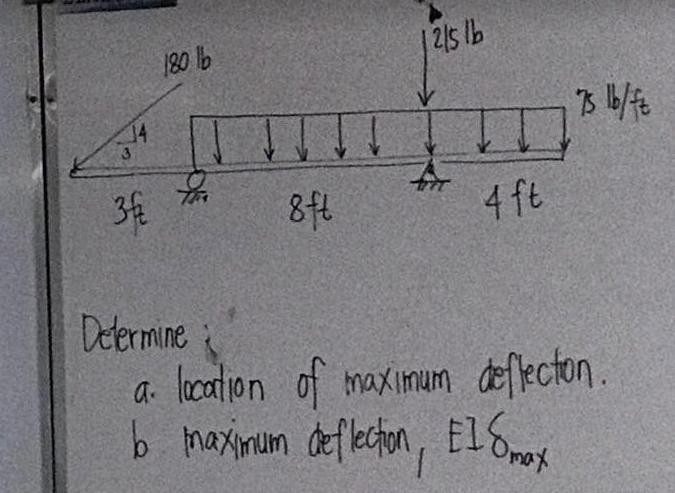 215 lb
180 lb
75 lb/ft
4
3
3ft
8ft
4 ft
Determine ;
a. location of maximum deflecton.
b maximum deflection, EIδmax